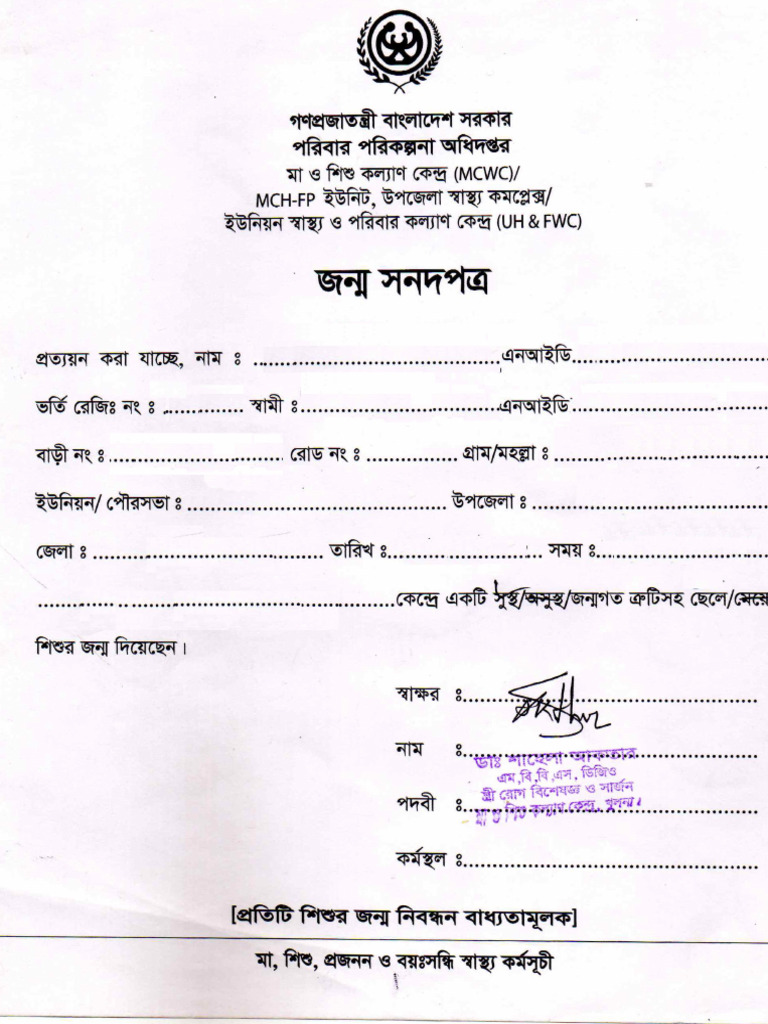 গণপ্রজাতন্ত্রী বাংলাদেশ সরকার
পরিবার পরিকল্পনা অধিদপ্তর
মা ও শিশু কল্যাণ কেন্দ্র (MCWC)/
MCH-FP ইউনিট, উপজেলা স্বাস্থ্য কমপ্লেক্স/
ইউনিয়ন স্বাস্থ্য ও পরিবার কল্যাণ কেন্দ্র (UH & FWC)
জন্ম সনদপত্র
প্রত্যয়ন করা যাচ্ছে, নাম ঃ ........................................ এনআইডি..............................
ভর্তি রেজিঃ নং ঃ .............. স্বামী ঃ.................................এনআইডি..............................
বাড়ী নং ঃ .............................. রোড নং ঃ ................ গ্রাম/মহল্লা ঃ......................
ইউনিয়ন/ পৌরসভা ঃ ............................................ উপজেলা ঃ..............................
জেলা ঃ ........................................ তারিখ ঃ......................... সময় ঃ......................
............................................................কেন্দ্রে একটি সুস্থ/অসুস্থ/জন্মগত ত্রুটিসহ ছেলে/মেয়ে
শিশুর জন্ম দিয়েছেন।
স্বাক্ষর ঃ..................................................
নাম ঃ..................................................
ডাঃ শাহেলা আকতার
এম,বি,বি,এস, ডিজিও
স্ত্রী রোগ বিশেষজ্ঞ ও সার্জন
পদবী ঃ..................................................
মা ও শিশু কল্যাণ কেন্দ্র, খুলনা।
কর্মস্থল ঃ..................................................
[প্রতিটি শিশুর জন্ম নিবন্ধন বাধ্যতামূলক]
মা, শিশু, প্রজনন ও বয়ঃসন্ধি স্বাস্থ্য কর্মসূচী